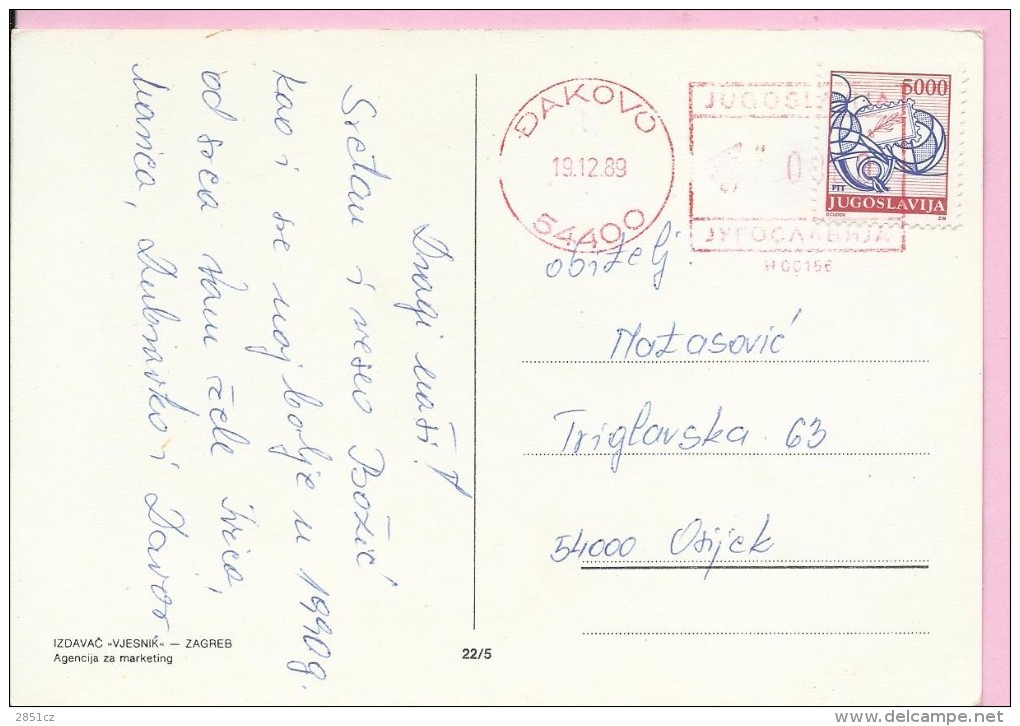 Dragi naši!
Sretan i veseo Božić
kao i sve naj bolje u 1990g.
od srca Vam žele Ivica,
Marica, Dubravko i Davor.
ĐAKOVO
19.12.89
54400
JUGOSLAVIJA
ЈУГОСЛАВИЈА
H 00156
5000
PTT
JUGOSLAVIJA
obitelj
Matasović
Triglavska 63
54000 Osijek
IZDAVAČ »VJESNIK« — ZAGREB
Agencija za marketing
22/5
2851cz
www.delcampe.net